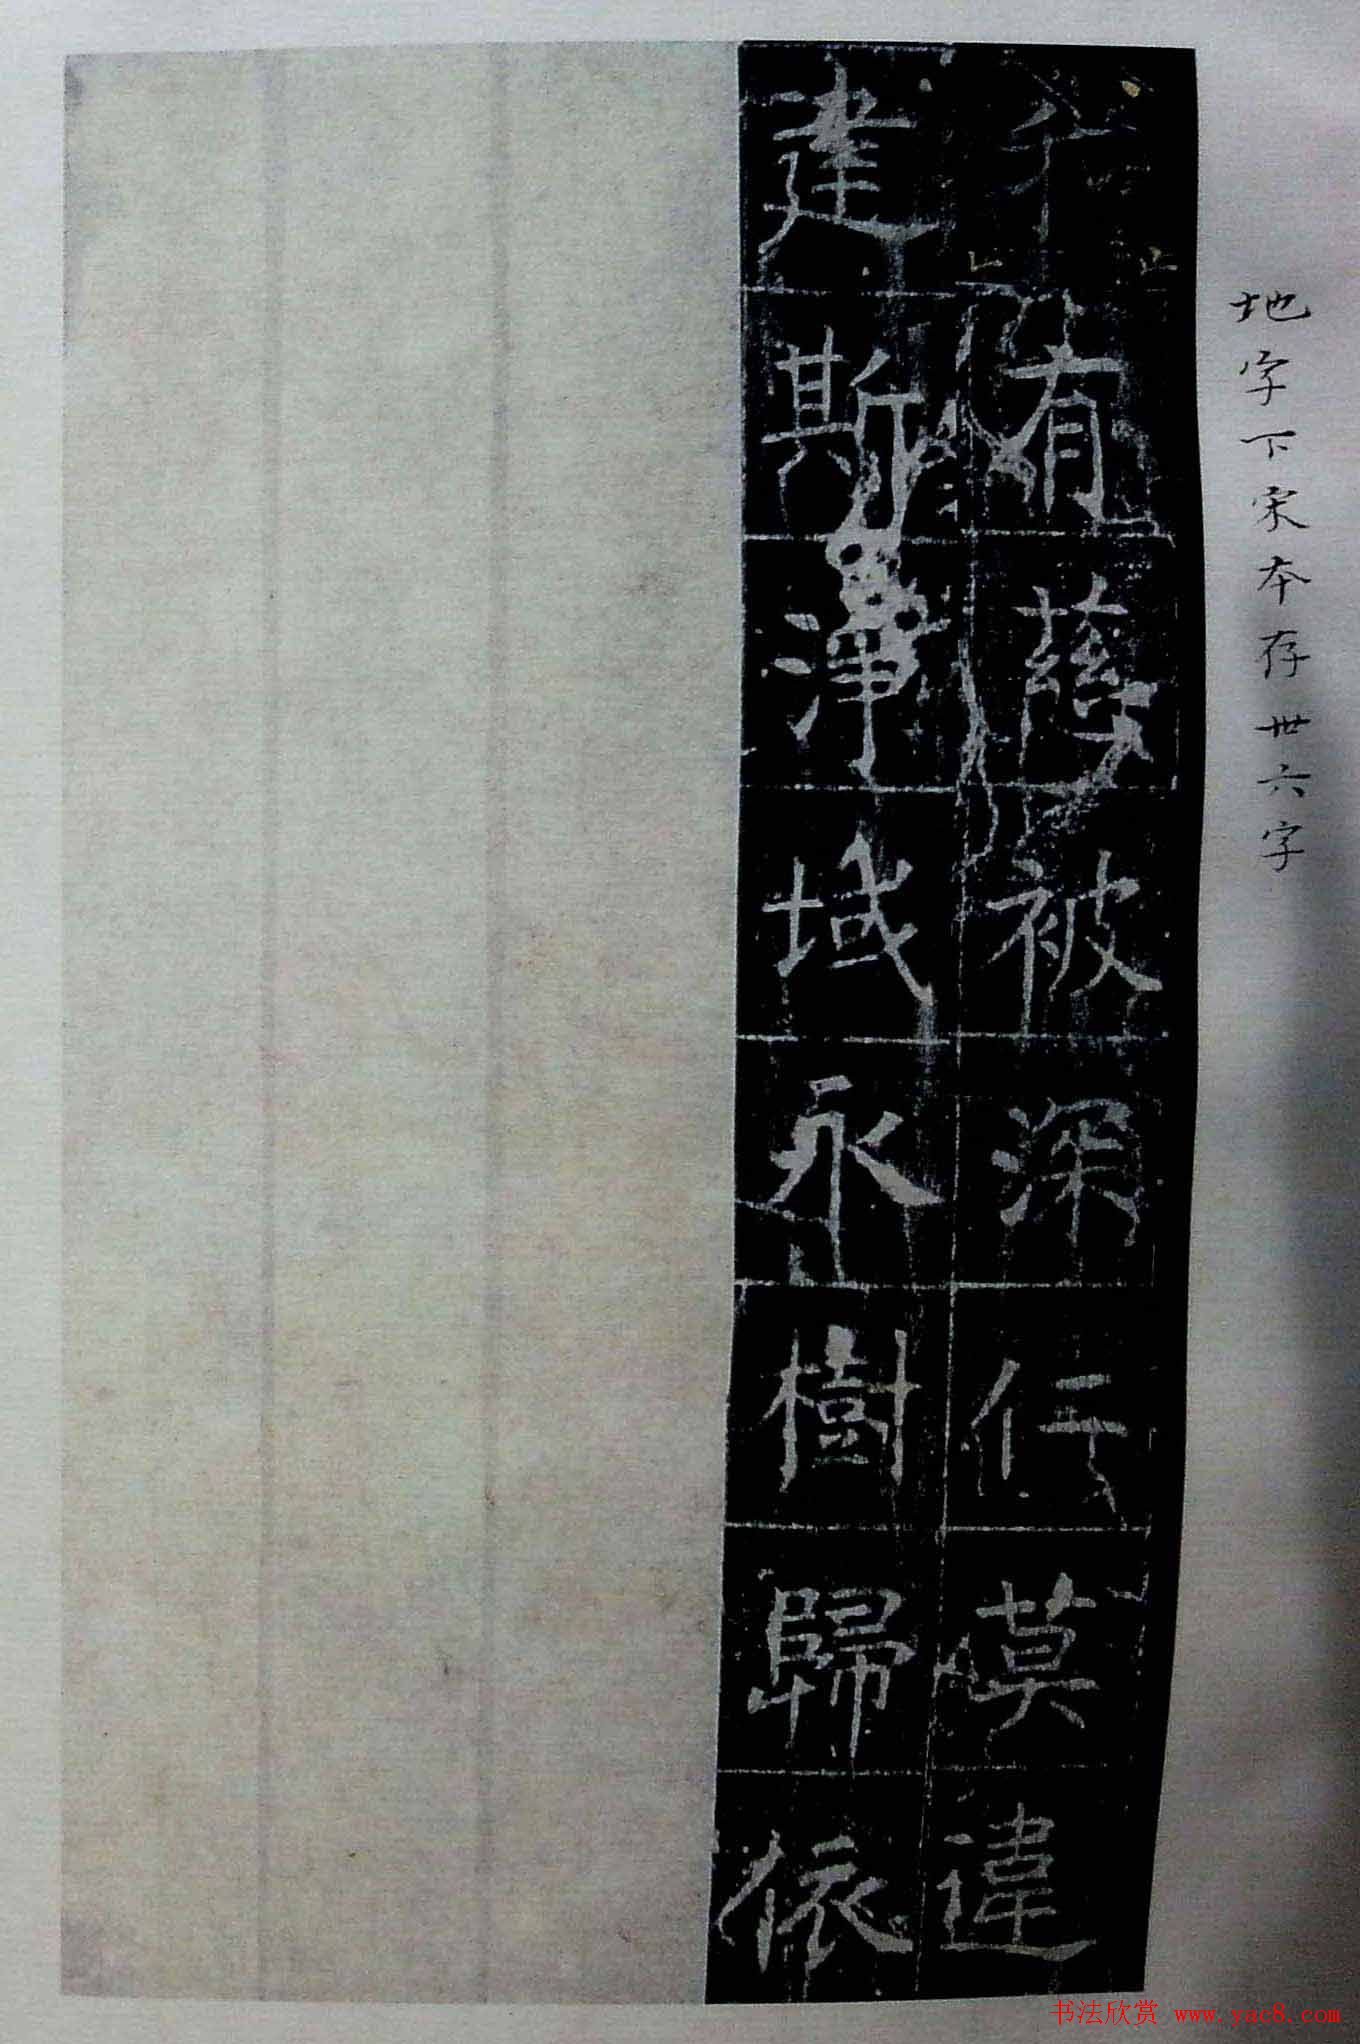 地字下宋本存卅六字
有慈被深仁莫違
建斯淨域永樹歸依
书法欣赏 www.yac8.com